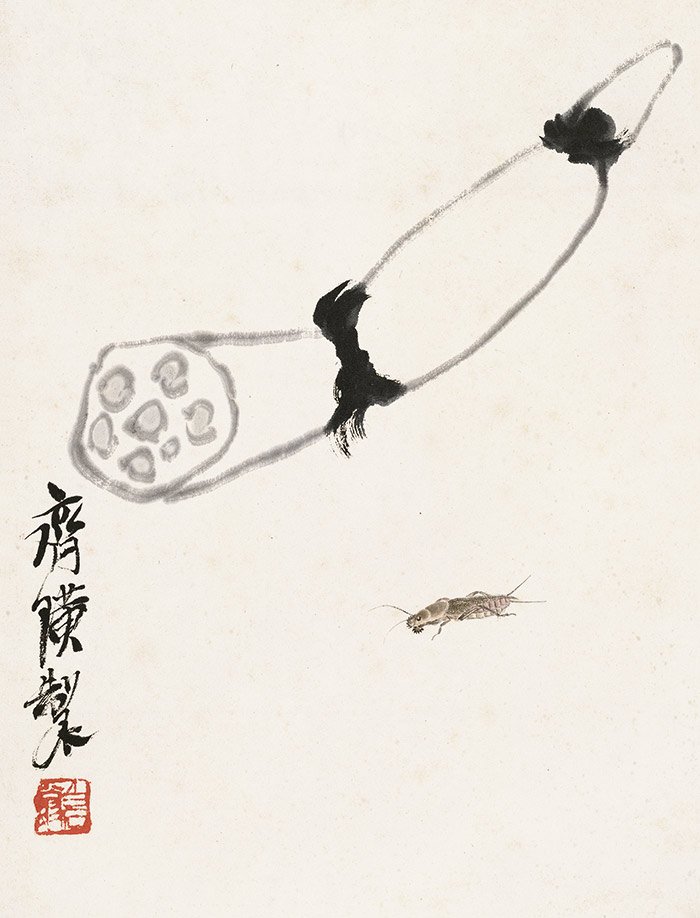 齊璜製